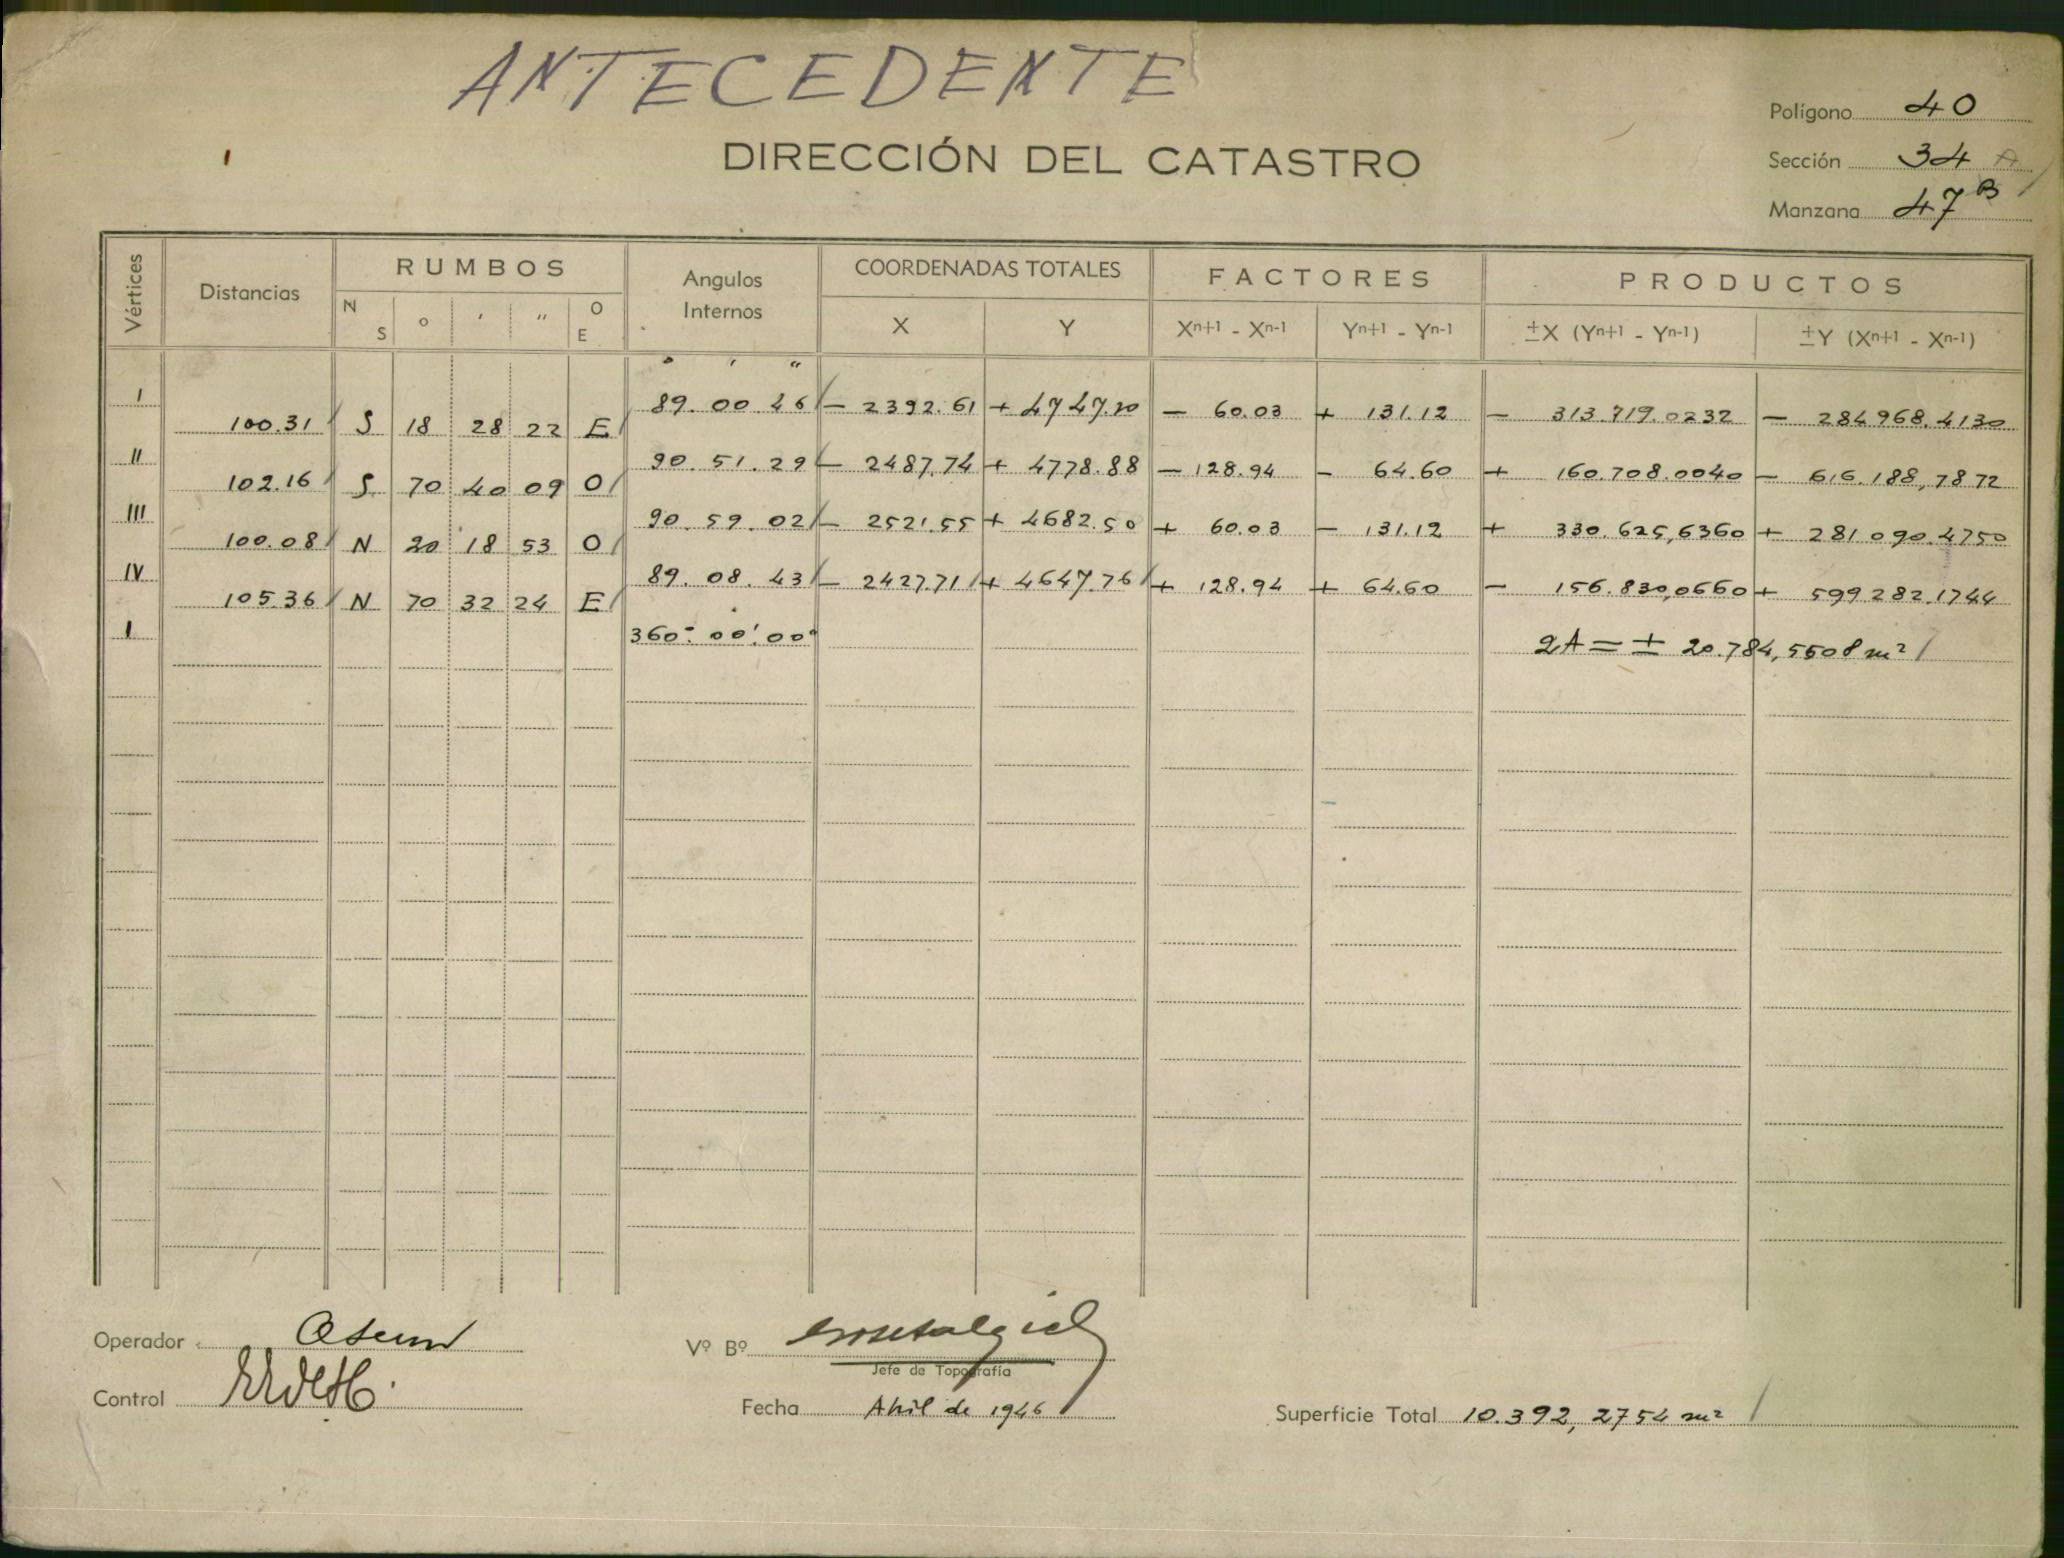 ANTECEDENTE
DIRECCIÓN DEL CATASTRO
Polígono 40
Sección 34 A
Manzana 47 B
Vértices Distancias RUMBOS Angulos Internos COORDENADAS TOTALES FACTORES PRODUCTOS
N S ° ' " O E X Y Xn+1 - Xn-1 Yn+1 - Yn-1 ±X (Yn+1 - Yn-1) ±Y (Xn+1 - Xn-1)
° ' "
I 89.00.46 - 2392.61 + 4747.10 - 60.03 + 131.12 - 313.719.0232 - 284.968.4130
100.31 S 18 28 22 E
II 90.51.29 - 2487.74 + 4778.88 - 128.94 - 64.60 + 160.708.0040 - 616.188,7872
102.16 S 70 40 09 O
III 90.59.02 - 2521.55 + 4682.50 + 60.03 - 131.12 + 330.625,6360 + 281.090.4750
100.08 N 20 18 53 O
IV 89.08.43 - 2427.71 + 4647.76 + 128.94 + 64.60 - 156.830,0660 + 599.282.1744
105.36 N 70 32 24 E
I 360°.00'.00" 2A = ± 20.784,5508 m²
Operador
Vº Bº
Jefe de Topografía
Control
Fecha Abril de 1946
Superficie Total 10.392,2754 m²